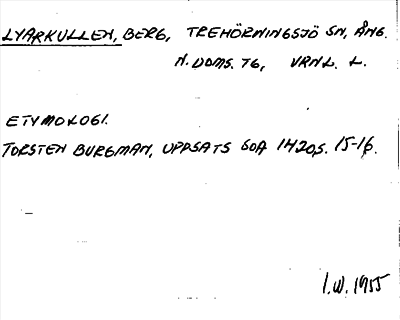 LYARKULLEN, BERG, TREHÖRNINGSJÖ SN, ÅNG.
N. DOMS. TG, VRNL. L.
ETYMOLOGI.
TORSTEN BURGMAN, UPPSATS SOA 1420, S. 15-16.
I.W. 1955